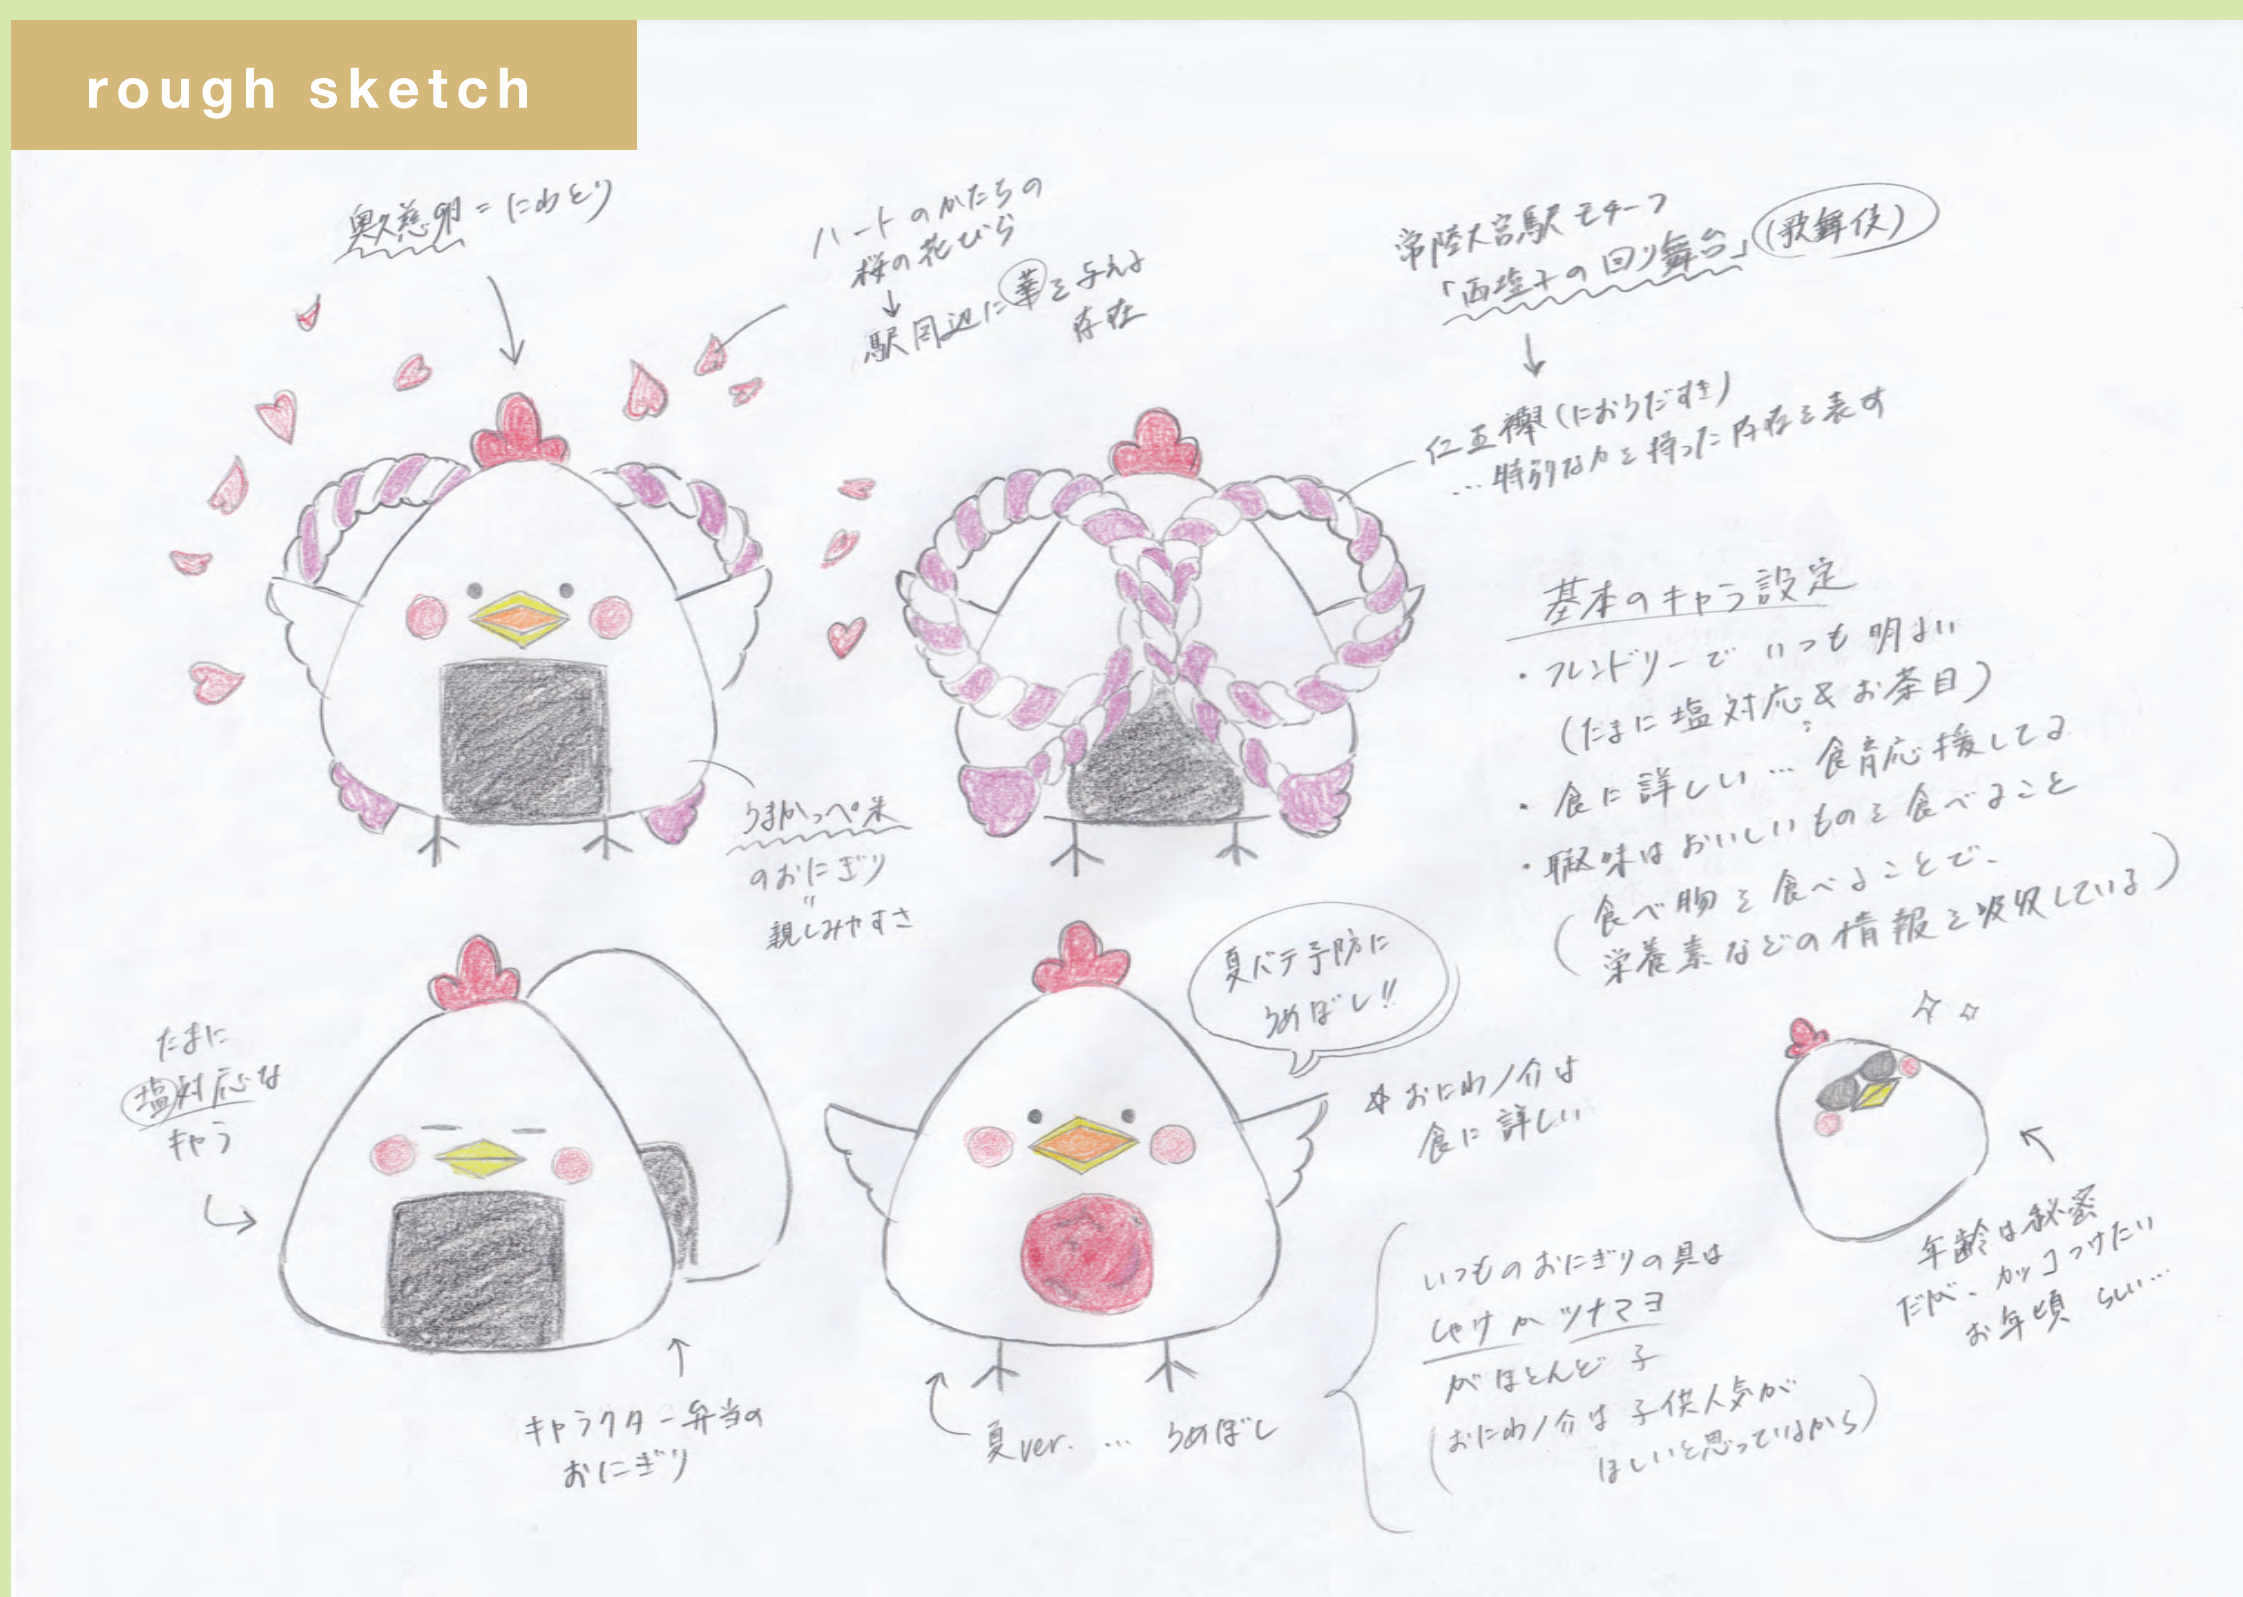 rough sketch
奥久慈卵 = にわとり
ハートのかたちの
桜の花びら
↓
駅周辺に華を与える
存在
常陸大宮駅モチーフ
「西塩子の回り舞台」(歌舞伎)
↓
仁王襷(におうだすき)
…特別な力を持った存在を表す
うまかっぺ米
のおにぎり
〃
親しみやすさ
基本のキャラ設定
・フレンドリーでいつも明るい
(たまに塩対応&お茶目)
・食に詳しい…食育応援してる
・趣味はおいしいものを食べること
(食べ物を食べることで、
栄養素などの情報を吸収している)
たまに
塩対応な
キャラ
キャラクター弁当の
おにぎり
夏バテ予防に
うめぼし!!
夏ver. … うめぼし
☆おにわノ介は
食に詳しい
いつものおにぎりの具は
しゃけかツナマヨ
がほとんど
(おにわノ介は子供人気が
ほしいと思っているから)
年齢は秘密
だが、カッコつけたい
お年頃らしい…